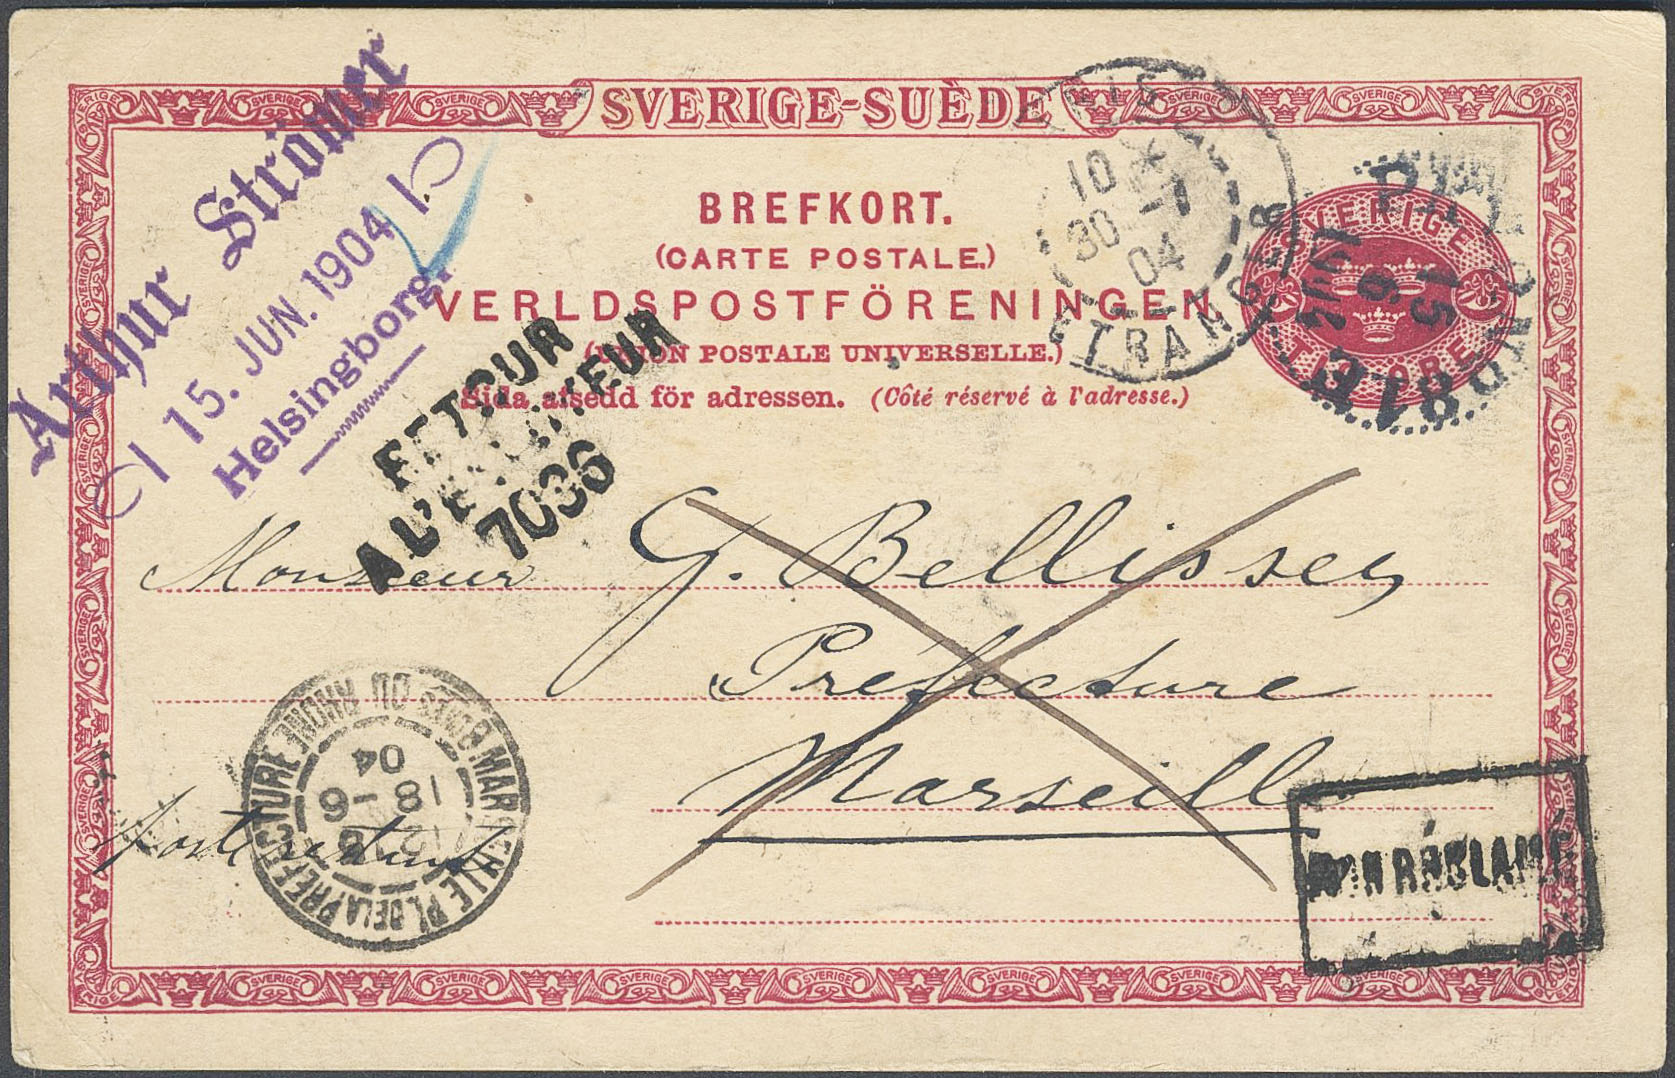 SVERIGE-SUÈDE
BREFKORT.
(CARTE POSTALE.)
VERLDSPOSTFÖRENINGEN.
(UNION POSTALE UNIVERSELLE.)
Sida afsedd för adressen. (Côté réservé à l'adresse.)
Arthur Strömer
15. JUN. 1904
Helsingborg.
RETOUR
A L'ENVOYEUR
7036
10
30 -7
04
ETRANGER
SVERIGE
TIO ÖRE
PKXP
81
15
6
1904
Monsieur G. Bellissen
Préfecture
Marseille
Poste restante
MARSEILLE PL. DE LA PREFECTURE
BCHES DU RHONE
18 -6
04
NON RÉCLAMÉ
SVERIGE